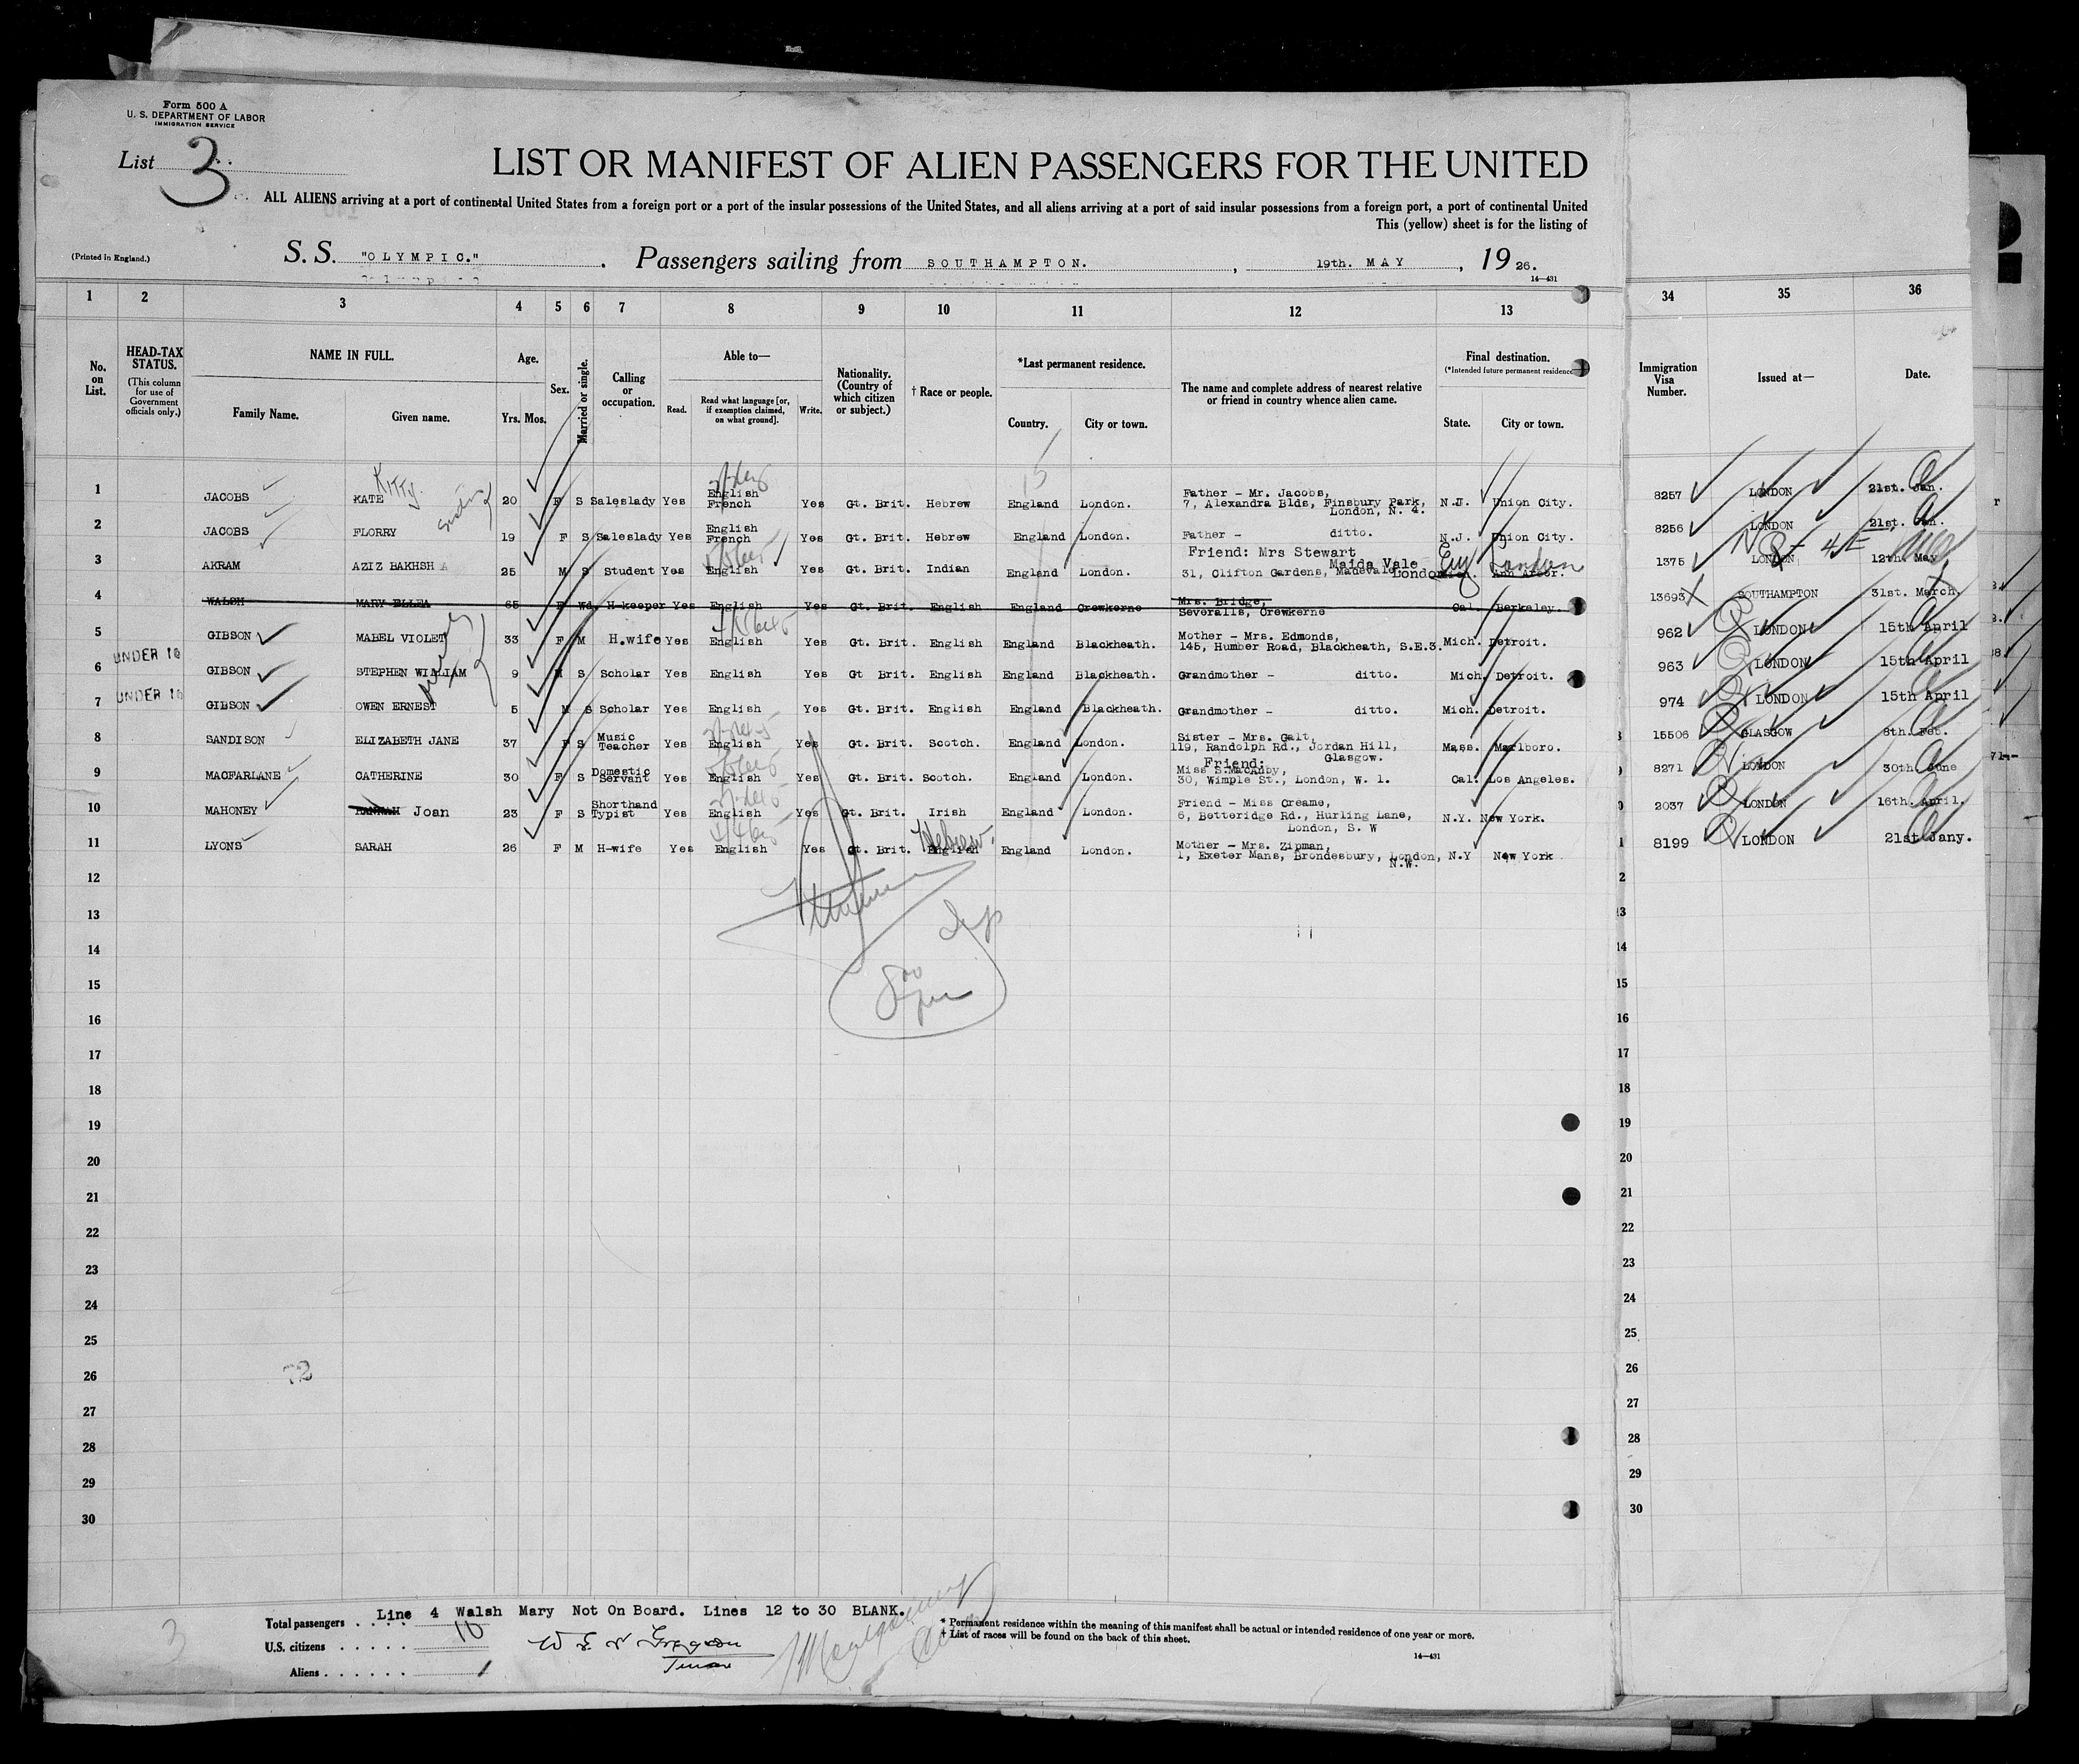 Form 500 A
U. S. DEPARTMENT OF LABOR
IMMIGRATION SERVICE
List 3
LIST OR MANIFEST OF ALIEN PASSENGERS FOR THE UNITED
ALL ALIENS arriving at a port of continental United States from a foreign port or a port of the insular possessions of the United States, and all aliens arriving at a port of said insular possessions from a foreign port, a port of continental United
This (yellow) sheet is for the listing of
(Printed in England.)
S. S. "OLYMPIC." Passengers sailing from SOUTHAMPTON. , 19th. MAY , 19 26.
14-431
1 2 3 4 5 6 7 8 9 10 11 12 13 34 35 36
No. on List.
HEAD-TAX STATUS.
(This column for use of Government officials only.)
NAME IN FULL.
Family Name. Given name.
Age.
Yrs. Mos.
Sex.
Married or single.
Calling or occupation.
Able to—
Read. Read what language [or, if exemption claimed, on what ground]. Write.
Nationality. (Country of which citizen or subject.)
† Race or people.
*Last permanent residence.
Country. City or town.
The name and complete address of nearest relative or friend in country whence alien came.
Final destination.
(*Intended future permanent residence
State. City or town.
Immigration Visa Number.
Issued at—
Date.
1 JACOBS KATE Kitty 20 F S Saleslady Yes English French Yes Gt. Brit. Hebrew England London. Father - Mr. Jacobs, 7, Alexandra Blds, Finsbury Park, London, N. 4. N.J. Union City. 8257 LONDON 21st. Jan.
2 JACOBS FLORRY 19 F S Saleslady Yes English French Yes Gt. Brit. Hebrew England London. Father - ditto. N.J. Union City. 8256 LONDON 21st. Jan.
3 AKRAM AZIZ BAKHSH 25 M S Student Yes English Yes Gt. Brit. Indian England London. Friend: Mrs Stewart 31, Clifton Gardens, Maida Vale London Eng London Ann Arbor. 1375 LONDON 12th. May
4 WALSH MARY ELLEA 65 F Wd. H-keeper Yes English Yes Gt. Brit. English England Crewkerne Mrs. Bridge, Severalls, Crewkerne Cal. Berkeley. 13693 SOUTHAMPTON 31st. March.
5 GIBSON MABEL VIOLET 33 F M H.wife Yes English Yes Gt. Brit. English England Blackheath. Mother - Mrs. Edmonds, 145, Humber Road, Blackheath, S.E.3. Mich. Detroit. 962 LONDON 15th April
UNDER 16
6 GIBSON STEPHEN WILLIAM 9 M S Scholar Yes English Yes Gt Brit. English England Blackheath. Grandmother - ditto. Mich. Detroit. 963 LONDON 15th April
UNDER 16
7 GIBSON OWEN ERNEST 5 M S Scholar Yes English Yes Gt. Brit. English England Blackheath. Grandmother - ditto. Mich. Detroit. 974 LONDON 15th April
8 SANDISON ELIZABETH JANE 37 F S Music Teacher Yes English Yes Gt. Brit. Scotch. England London. Sister - Mrs. Galt, 119, Randolph Rd., Jordan Hill, Glasgow. Mass. Marlboro. 15506 GLASGOW 8th. Feb.
9 MACFARLANE CATHERINE 30 F S Domestic Servant Yes English Yes Gt. Brit. Scotch. England London. Friend: Miss S. 30, Wimple St., London, W. 1. Cal. Los Angeles. 8271 LONDON 30th. June
10 MAHONEY HANNAH Joan 23 F S Shorthand Typist Yes English Yes Gt. Brit. Irish England London. Friend - Miss Creame, 6, Betteridge Rd., Hurling Lane, London, S. W N.Y. New York. 2037 LONDON 16th. April.
11 LYONS SARAH 26 F M H-wife Yes English Yes Gt. Brit. English Hebrew England London. Mother - Mrs. Zipman, 1, Exeter Mans, Brondesbury, London, N.W. N.Y New York 8199 LONDON 21st Jany.
12
13
14
15
16
17
18
19
20
21
22
23
24
25
26
27
28
29
30
Line 4 Walsh Mary Not On Board. Lines 12 to 30 BLANK.
Total passengers . . . . 10
U.S. citizens . . . . .
Aliens . . . . . .
* Permanent residence within the meaning of this manifest shall be actual or intended residence of one year or more.
† List of races will be found on the back of this sheet.
14-431